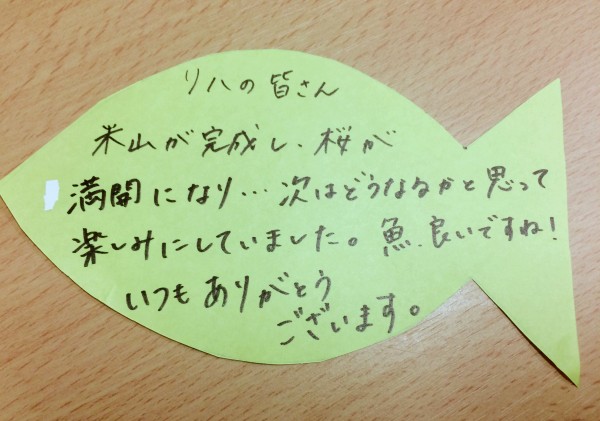 リハの皆さん
米山が完成し、桜が
満開になり…次はどうなるかと思って
楽しみにしていました。魚、良いですね!
いつもありがとう
ございます。